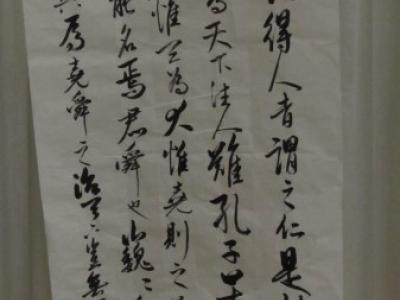 得人者謂之仁是
為天下得人難孔子
惟天為大惟堯則之
能名焉君舜也巍〻
焉堯舜之治天下豈無